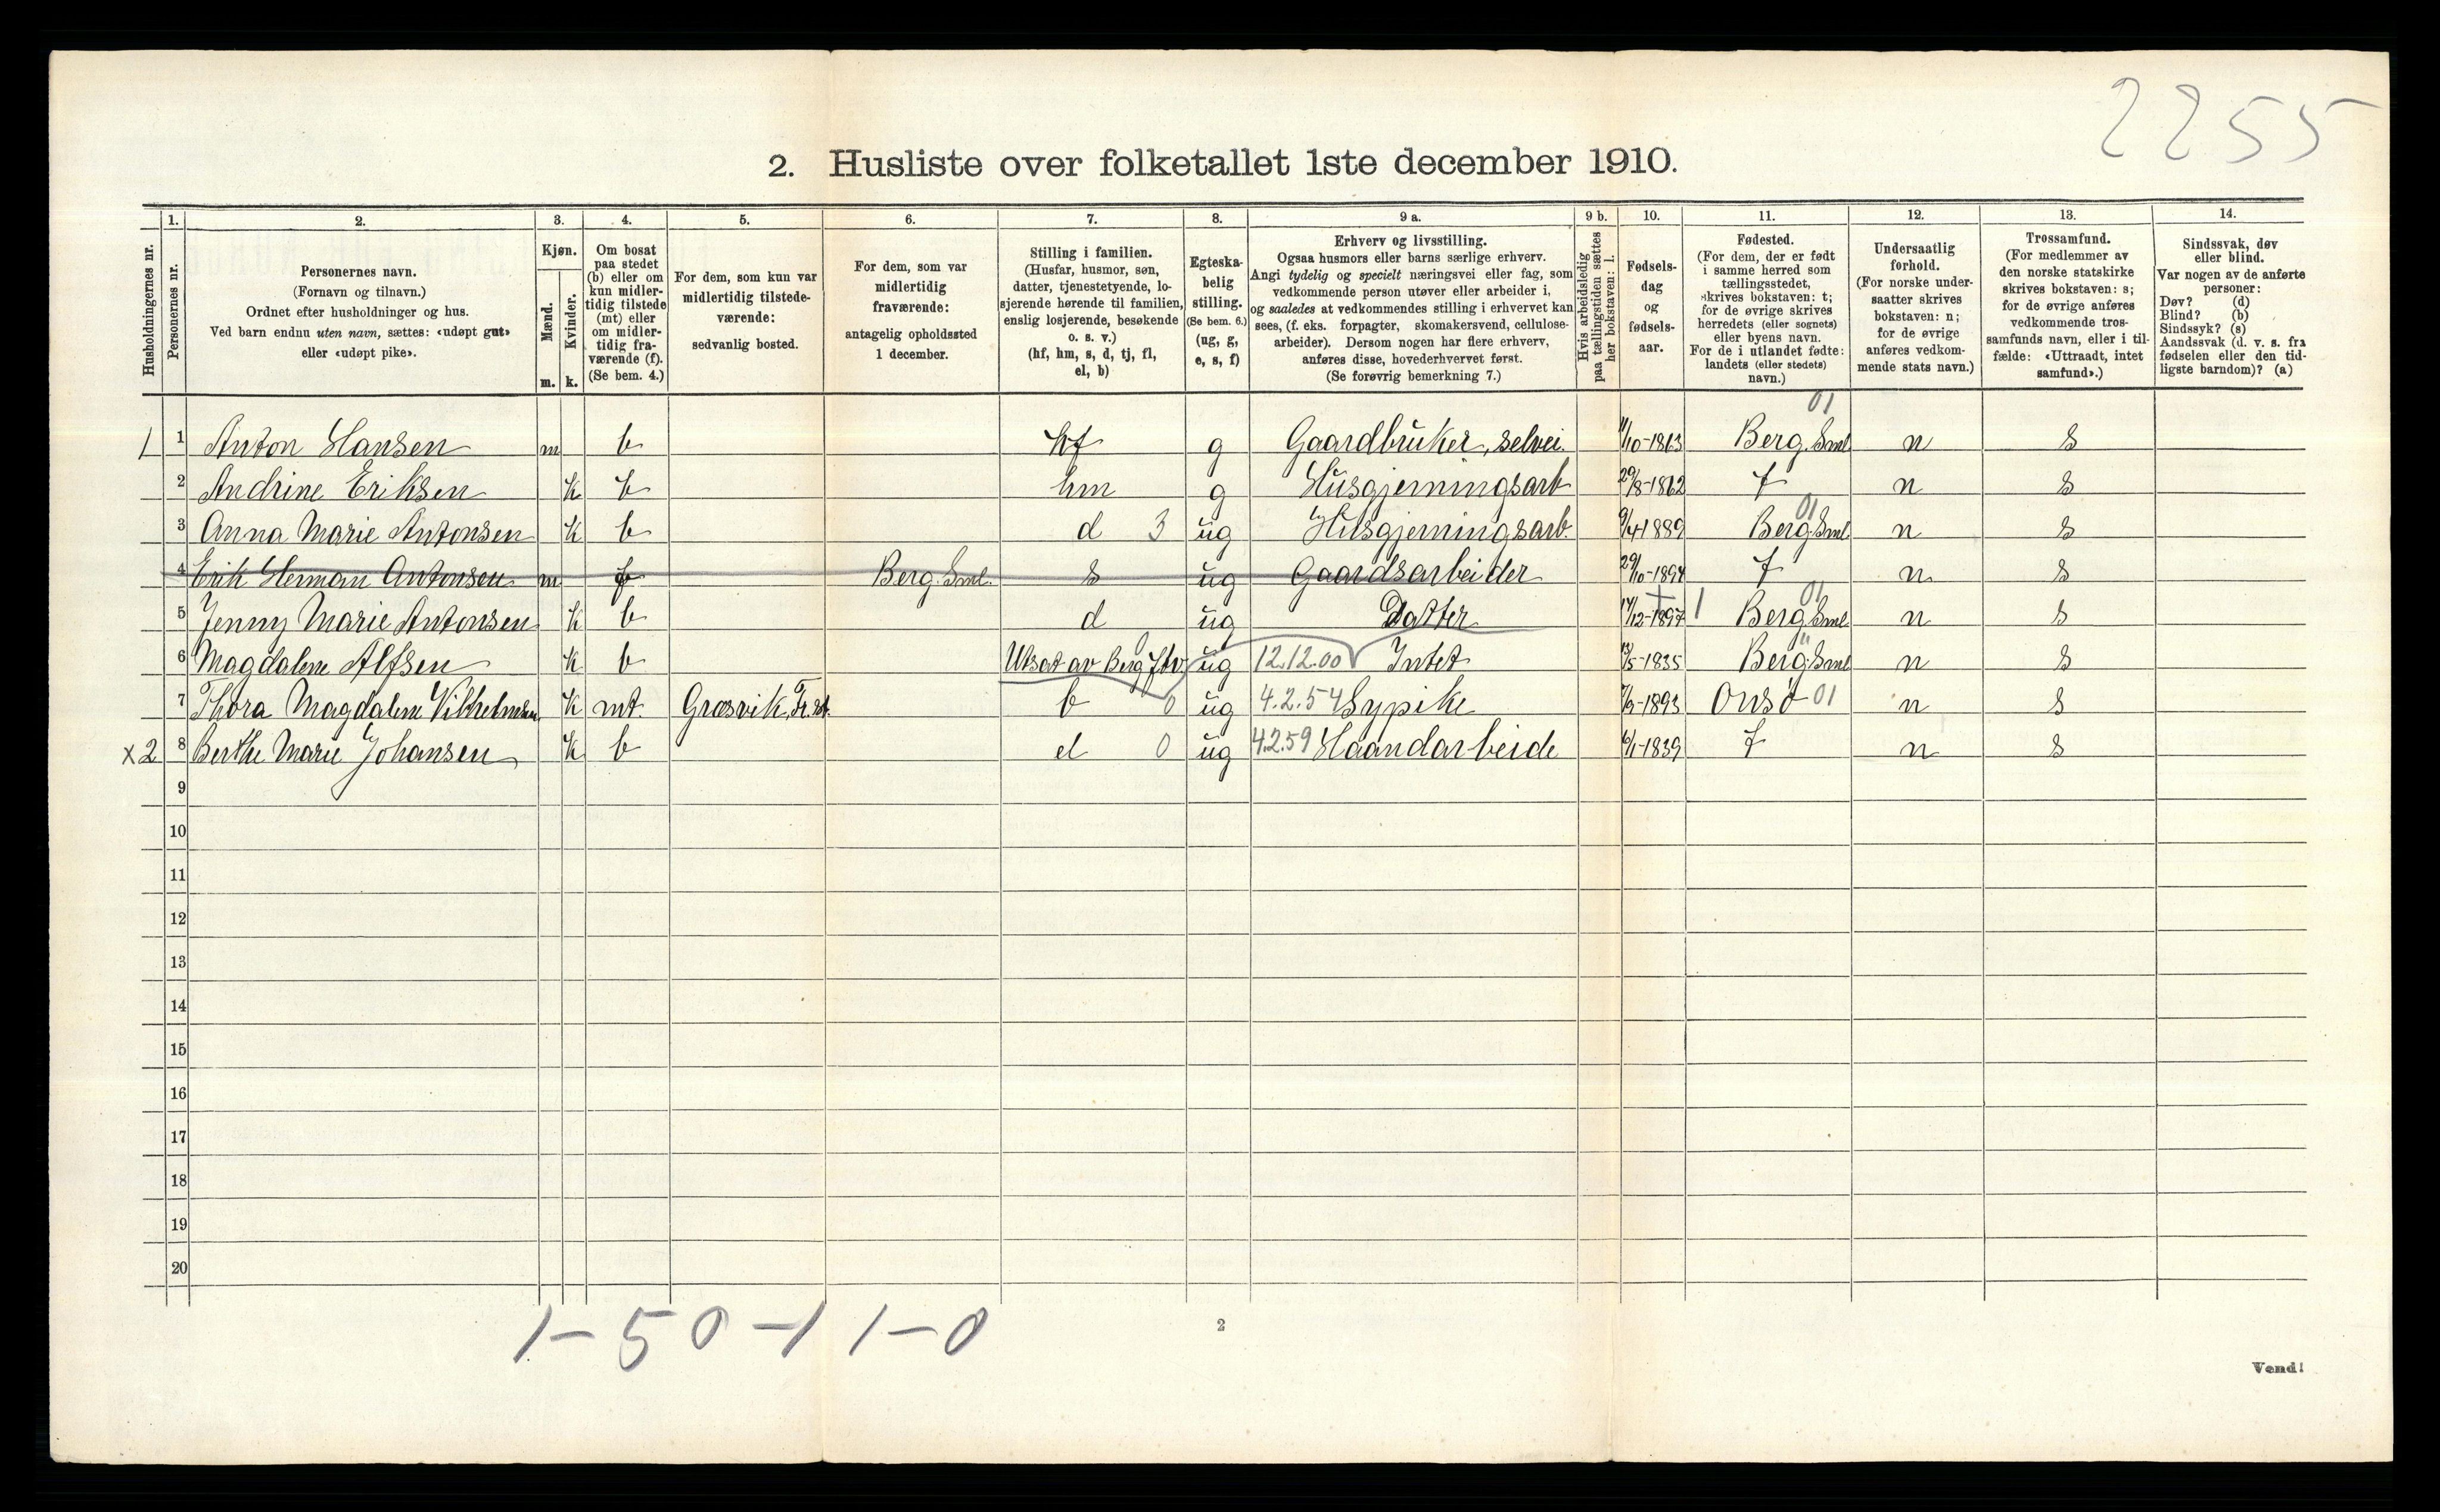 2255
2. Husliste over folketallet 1ste december 1910.
Husholdningernes nr.
1. Personernes nr.
2. Personernes navn.
(Fornavn og tilnavn.)
Ordnet efter husholdninger og hus.
Ved barn endnu uten navn, sættes: «udøpt gut»
eller «udøpt pike».
3. Kjøn.
Mænd. Kvinder.
m. k.
4. Om bosat
paa stedet
(b) eller om
kun midler-
tidig tilstede
(mt) eller
om midler-
tidig fra-
værende (f).
(Se bem. 4.)
5. For dem, som kun var
midlertidig tilstede-
værende:
sedvanlig bosted.
6. For dem, som var
midlertidig
fraværende:
antagelig opholdssted
1 december.
7. Stilling i familien.
(Husfar, husmor, søn,
datter, tjenestetyende, lo-
sjerende hørende til familien,
enslig losjerende, besøkende
o. s. v.)
(hf, hm, s, d, tj, fl,
el, b)
8. Egteska-
belig
stilling.
(Se bem. 6.)
(ug, g,
e, s, f)
9 a. Erhverv og livsstilling.
Ogsaa husmors eller barns særlige erhverv.
Angi tydelig og specielt næringsvei eller fag, som
vedkommende person utøver eller arbeider i,
og saaledes at vedkommendes stilling i erhvervet kan
sees, (f. eks. forpagter, skomakersvend, cellulose-
arbeider). Dersom nogen har flere erhverv,
anføres disse, hovederhvervet først.
(Se forøvrig bemerkning 7.)
9 b. Hvis arbeidsledig
paa tællingstiden sættes
her bokstaven: l.
10. Fødsels-
dag
og
fødsels-
aar.
11. Fødested.
(For dem, der er født
i samme herred som
tællingsstedet,
skrives bokstaven: t;
for de øvrige skrives
herredets (eller sognets)
eller byens navn.
For de i utlandet fødte:
landets (eller stedets)
navn.)
12. Undersaatlig
forhold.
(For norske under-
saatter skrives
bokstaven: n;
for de øvrige
anføres vedkom-
mende stats navn.)
13. Trossamfund.
(For medlemmer av
den norske statskirke
skrives bokstaven: s;
for de øvrige anføres
vedkommende tros-
samfunds navn, eller i til-
fælde: «Uttraadt, intet
samfund».)
14. Sindssvak, døv
eller blind.
Var nogen av de anførte
personer:
Døv? (d)
Blind? (b)
Sindssyk? (s)
Aandssvak (d. v. s. fra
fødselen eller den tid-
ligste barndom)? (a)
01
1 1 Anton Hansen m b hf g Gaardbruker, selvei. 11/10-1863 Berg. Sml. n s
2 Andrine Eriksen k b hm g Husgjerningsarb 29/8-1862 t n s
01
3 Anna Marie Antonsen k b d 3 ug Husgjerningsarb. 9/4-1889 Berg. Sml. n s
4 Erik Herman Antonsen m f Berg. Sml. s ug Gaardsarbeider 29/10-1894 t n s
01
5 Jenny Marie Antonsen k b d ug Datter 14/12-1897 1 Berg. Sml. n s
6 Magdalene Alfsen k b Utsat av Berg ftv. 0 ug 12.12.00 Intet 13/5-1835 Berg. Sml. n s
7 Thora Magdalene Vilhelmsen k mt. Græsvik, Fr.st. b 0 ug 4.2.54 Sypike 7/9-1893 Onsø 01 n s
x2 8 Berthe Marie Johansen k b el 0 ug 4.2.59 Haandarbeide 6/1-1839 t n s
9
10
11
12
13
14
15
16
17
18
19
20
1-50-11-0
2
Vend!